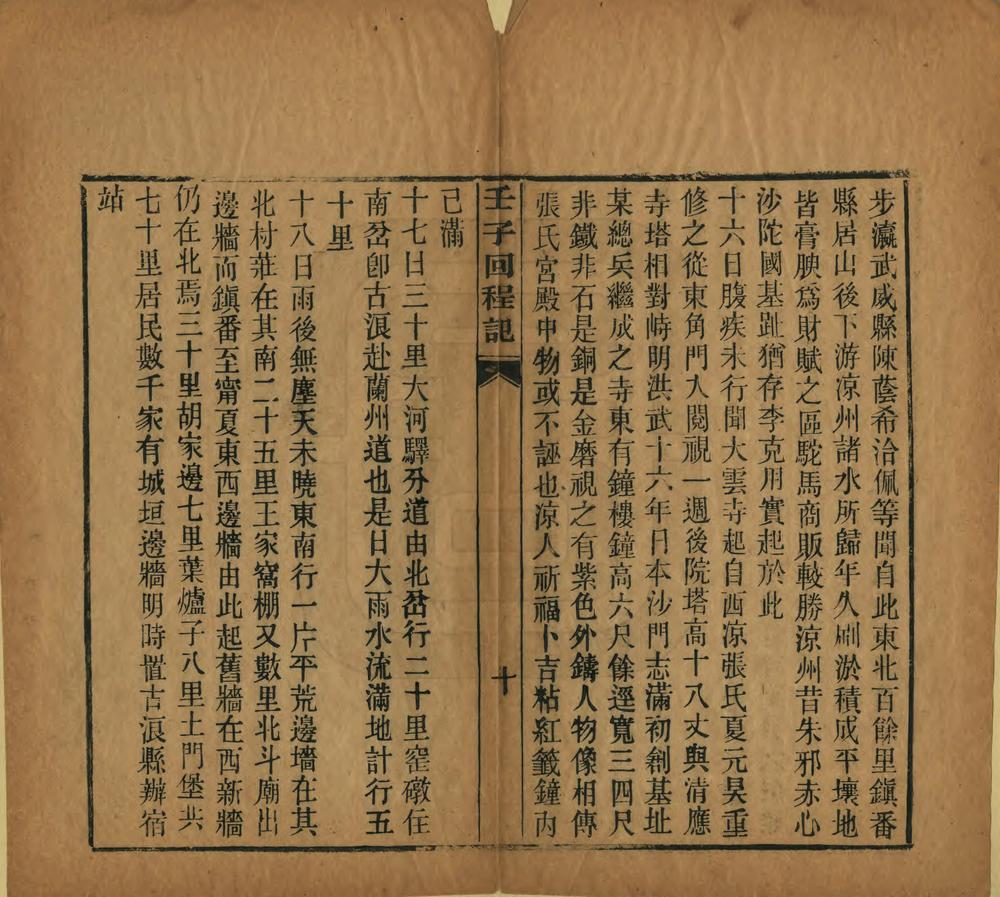 步瀛武威縣陳蔭希洽佩等聞自此東北百餘里鎮番
縣居山後下游涼州諸水所歸年久刷淤積成平壤地
皆膏腴爲財賦之區駝馬商販較勝涼州昔朱邪赤心
沙陀國基趾猶存李克用實起於此
十六日腹疾未行聞大雲寺起自西涼張氏夏元昊重
修之從東角門入閱視一週後院塔高十八丈與清應
寺塔相對峙明洪武十六年日本沙門志滿初創基址
某總兵繼成之寺東有鐘樓鐘高六尺餘逕寬三四尺
非鐵非石是銅是金磨視之有紫色外鑄人物像相傳
張氏宮殿中物或不誣也涼人祈福卜吉粘紅籤鐘內
壬子回程記
十
已滿
十七日三十里大河驛分道由北岔行二十里窑礅住
南岔卽古浪赴蘭州道也是日大雨水流滿地計行五
十里
十八日雨後無塵天未曉東南行一片平荒邊墻在其
北村莊在其南二十五里王家窩棚又數里北斗廟出
邊牆而鎭番至甯夏東西邊牆由此起舊牆在西新牆
仍在北焉三十里胡家邊七里葉爐子八里土門堡共
七十里居民數千家有城垣邊牆明時置古浪縣辦宿
站